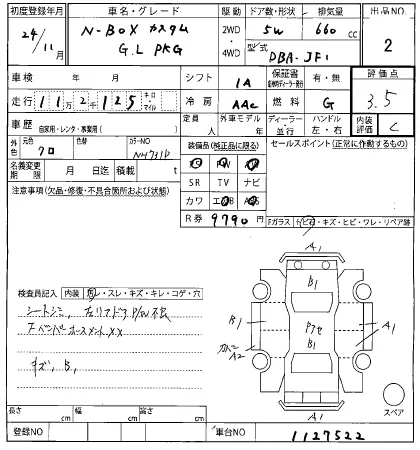 初度登録年月 車名・グレード 駆動 ドア数・形状 排気量 出品NO
24/11月 N-BOX カスタム 2WD 5W 660cc 2
G.L PKG ・ 4WD 型式 DBA-JF1
車検 年 月 シフト IA 保証書 有・無 評価点
走行 11万2千125 キロ・マイル 冷房 AAC 燃料 G 3.5
車歴 自家用・レンタ・事業用( ) 定員 人 外車モデル 年 ディーラー・並行 ハンドル 左・右 内装評価 C
外色 元色 クロ 色替 カラーNO NH731P 装備品(純正品に限る) セールスポイント(正常に作動するもの)
名義変更期限 月 日迄 積載 t SR TV ナビ
注意事項(欠品・修復・不具合箇所および状態) カワ
R券 9790円 Fガラス
A1
検査員記入 内装 スレ・キズ・キレ・コゲ・穴 B1
シートシミ, 左リアドア P/W不良
キズ, B1
A1
A2
B1
A1
A1
スペア
長さ cm 幅 cm 高さ cm
登録NO 車台NO 1127522